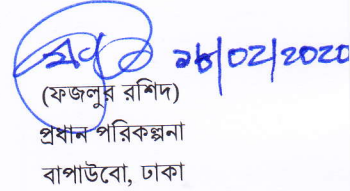 ১৮/০২/২০২০
(ফজলুর রশিদ)
প্রধান পরিকল্পনা
বাপাউবো, ঢাকা